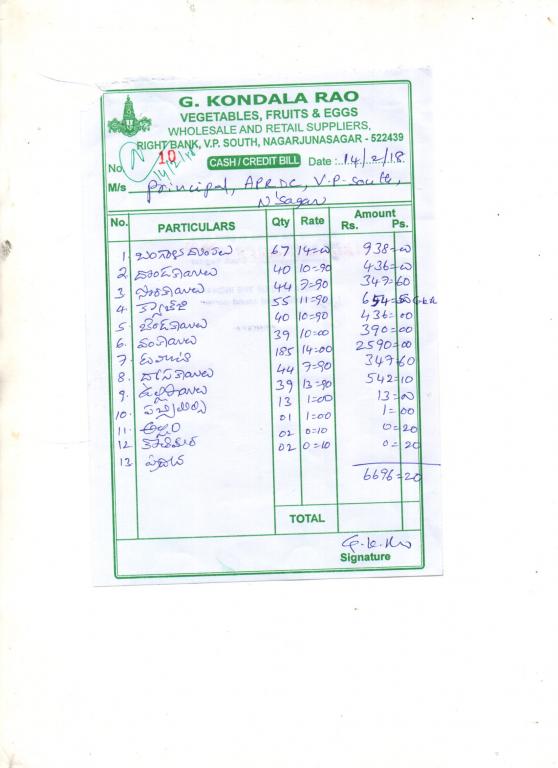 G. KONDALA RAO
VEGETABLES, FRUITS & EGGS
WHOLESALE AND RETAIL SUPPLIERS,
RIGHT BANK, V.P. SOUTH, NAGARJUNASAGAR - 522439
No. 10 14/2/18 CASH / CREDIT BILL Date : 14/2/18
M/s Principal, APRDC, V.P-South,
N'Sagar
No. PARTICULARS Qty Rate Amount Rs. Ps.
1. బంగాళదుంపలు 67 14=00 938=00
2. దొండకాయలు 40 10=90 436=00
3. సొరకాయలు 44 7=90 347=60
4. క్యాబేజి 55 11=90 654=50 G.K.R
5. బెండకాయలు 40 10=90 436=00
6. వంకాయలు 39 10=00 390=00
7. టమాట 185 14=00 2590=00
8. దోసకాయలు 44 7=90 347=60
9. ఉల్లిపాయలు 39 13=90 542=10
10. పచ్చిమిర్చి 13 1=00 13=00
11. అల్లం 01 1=00 1=00
12. కొతిమీర 02 0=10 0=20
13. పుదీన 02 0=10 0=20
6696=20
TOTAL
Signature